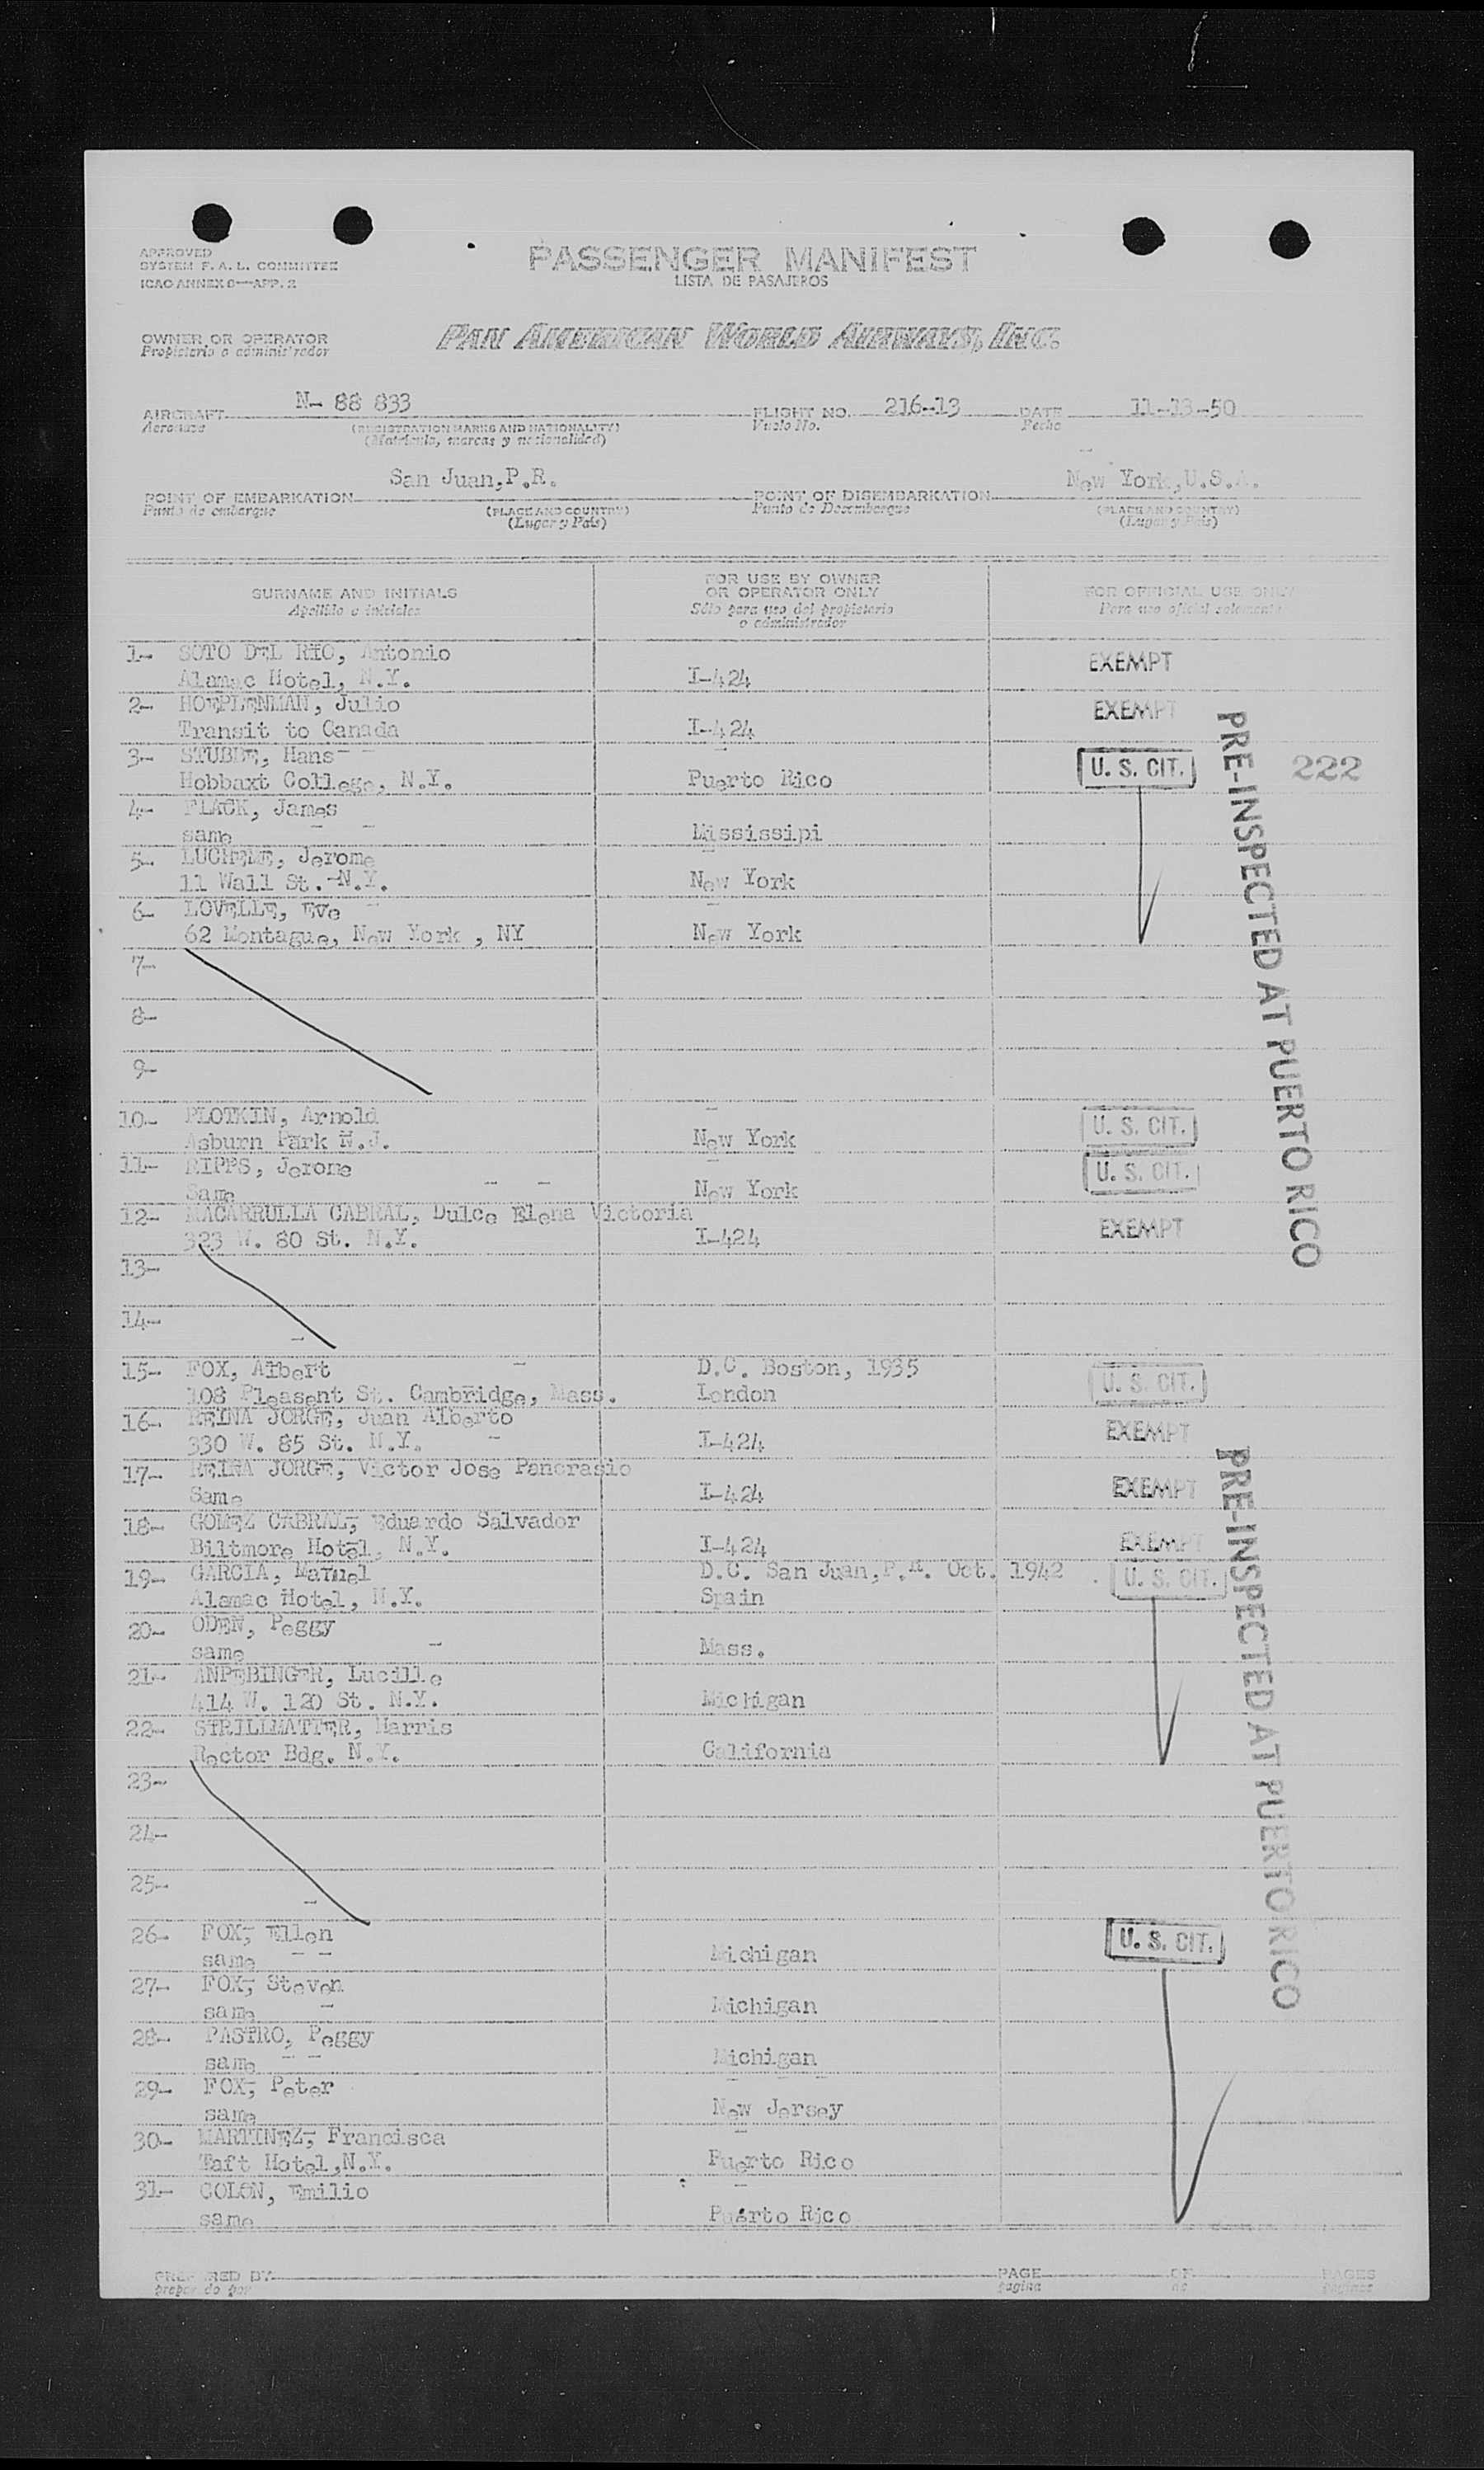 APPROVED
SYSTEM F. A. L. COMMITTEE
ICAO ANNEX 9—APP. 2
PASSENGER MANIFEST
LISTA DE PASAJEROS
OWNER OR OPERATOR
Propietario o administrador
PAN AMERICAN WORLD AIRWAYS, INC.
AIRCRAFT N- 88 833 FLIGHT NO. 216-13 DATE 11-13-50
Aeronave (REGISTRATION MARKS AND NATIONALITY) Vuelo No. Fecha
(Matricula, marcas y nacionalidad)
San Juan,P.R. New York,U.S.A.
POINT OF EMBARKATION POINT OF DISEMBARKATION
Punto de embarque (PLACE AND COUNTRY) Punto de Desembarque (PLACE AND COUNTRY)
(Lugar y País) (Lugar y País)
SURNAME AND INITIALS
Apellido e iniciales
FOR USE BY OWNER
OR OPERATOR ONLY
Sólo para uso del propietario
o administrador
FOR OFFICIAL USE ONLY
Para uso oficial solamente
1- SOTO DEL RIO, Antonio EXEMPT
Alamac Hotel, N.Y. I-424
2- HOEPLENMAN, Julio EXEMPT
Transit to Canada I-424
3- STUBBE, Hans
Hobbaxt College, N.Y. Puerto Rico U. S. CIT. 222
4- FLACK, James
same Mississipi
5- LUCHEME, Jerome
11 Wall St. N.Y. New York
6- LOVELLE, Eve
62 Montague, New York , NY New York
7-
8-
9-
PRE-INSPECTED AT PUERTO RICO
10- PLOTKIN, Arnold U. S. CIT.
Asburn Park N.J. New York
11- RIPPS, Jerome U. S. CIT.
Same New York
12- MACARRULLA CABRAL, Dulce Elena Victoria
323 W. 80 St. N.Y. I-424 EXEMPT
13-
14-
15- FOX, Albert D.C. Boston, 1935 U. S. CIT.
108 Pleasent St. Cambridge, Mass. London
16- REINA JORGE, Juan Alberto EXEMPT
330 W. 85 St. N.Y. I-424
17- REINA JORGE, Victor Jose Pancrasio
Same I-424 EXEMPT
18- GOMEZ CABRAL, Eduardo Salvador
Biltmore Hotel, N.Y. I-424 EXEMPT
19- GARCIA, Manuel D.C. San Juan,P.R. Oct. 1942 U. S. CIT.
Alamac Hotel, N.Y. Spain
20- ODEN, Peggy
same Mass.
21- ANPEBINGER, Lucille
414 W. 120 St. N.Y. Michigan
22- STRILLMATTER, Harris
Rector Bdg. N.Y. California
23-
24-
25-
PRE-INSPECTED AT PUERTO RICO
26- FOX, Ellen U. S. CIT.
same Michigan
27- FOX, Steven
same Michigan
28- PASTRO, Peggy
same Michigan
29- FOX, Peter
same New Jersey
30- MARTINEZ, Francisca
Taft Hotel,N.Y. Puerto Rico
31- COLON, Emilio
same Puerto Rico
PREPARED BY PAGE OF PAGES
preparado por pagina de paginas